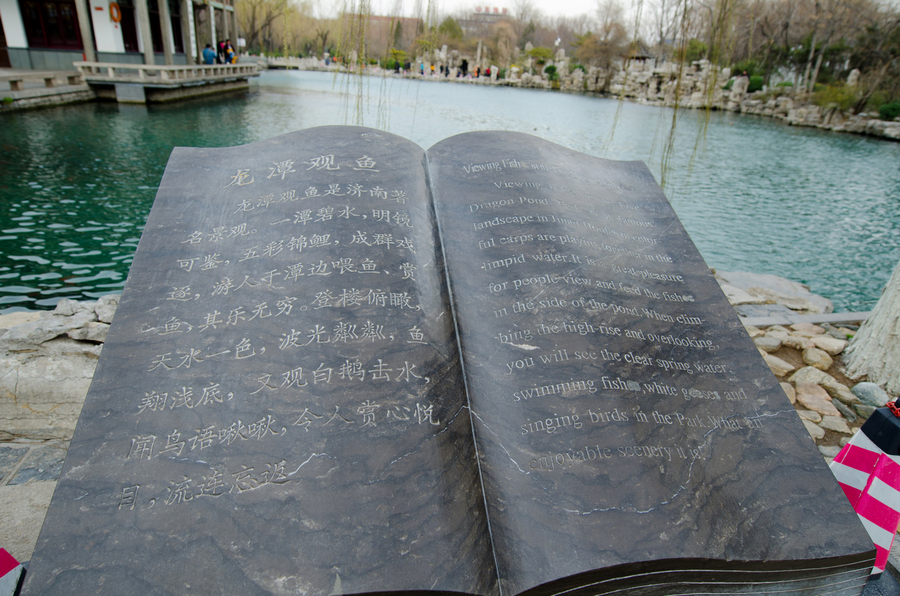 龙潭观鱼
龙潭观鱼是济南著
名景观。一潭碧水，明镜
可鉴，五彩锦鲤，成群戏
逐，游人于潭边喂鱼、赏
鱼，其乐无穷。登楼俯瞰，
天水一色，波光粼粼，鱼
翔浅底，又观白鹅击水，
闻鸟语啾啾，令人赏心悦
目，流连忘返
Viewing Fishes
Viewing
Dragon Pond
landscape in
ful carps are playing in the
limpid water. It is pleasure
for people view and feed the fishes
in the side of the pond. When clim
bing the high-rise and overlooking,
you will see the clear spring water,
swimming fishes, white geeses and
singing birds in the Park. What an
enjoyable scenery it is!